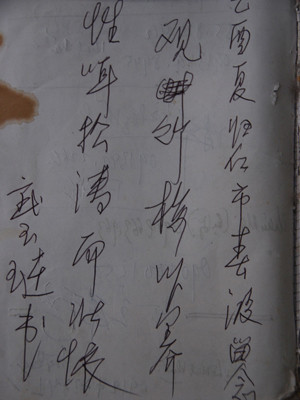 乙酉夏归仁市春波留念
观竹梅以养
性听松涛而壮怀
玉琏书